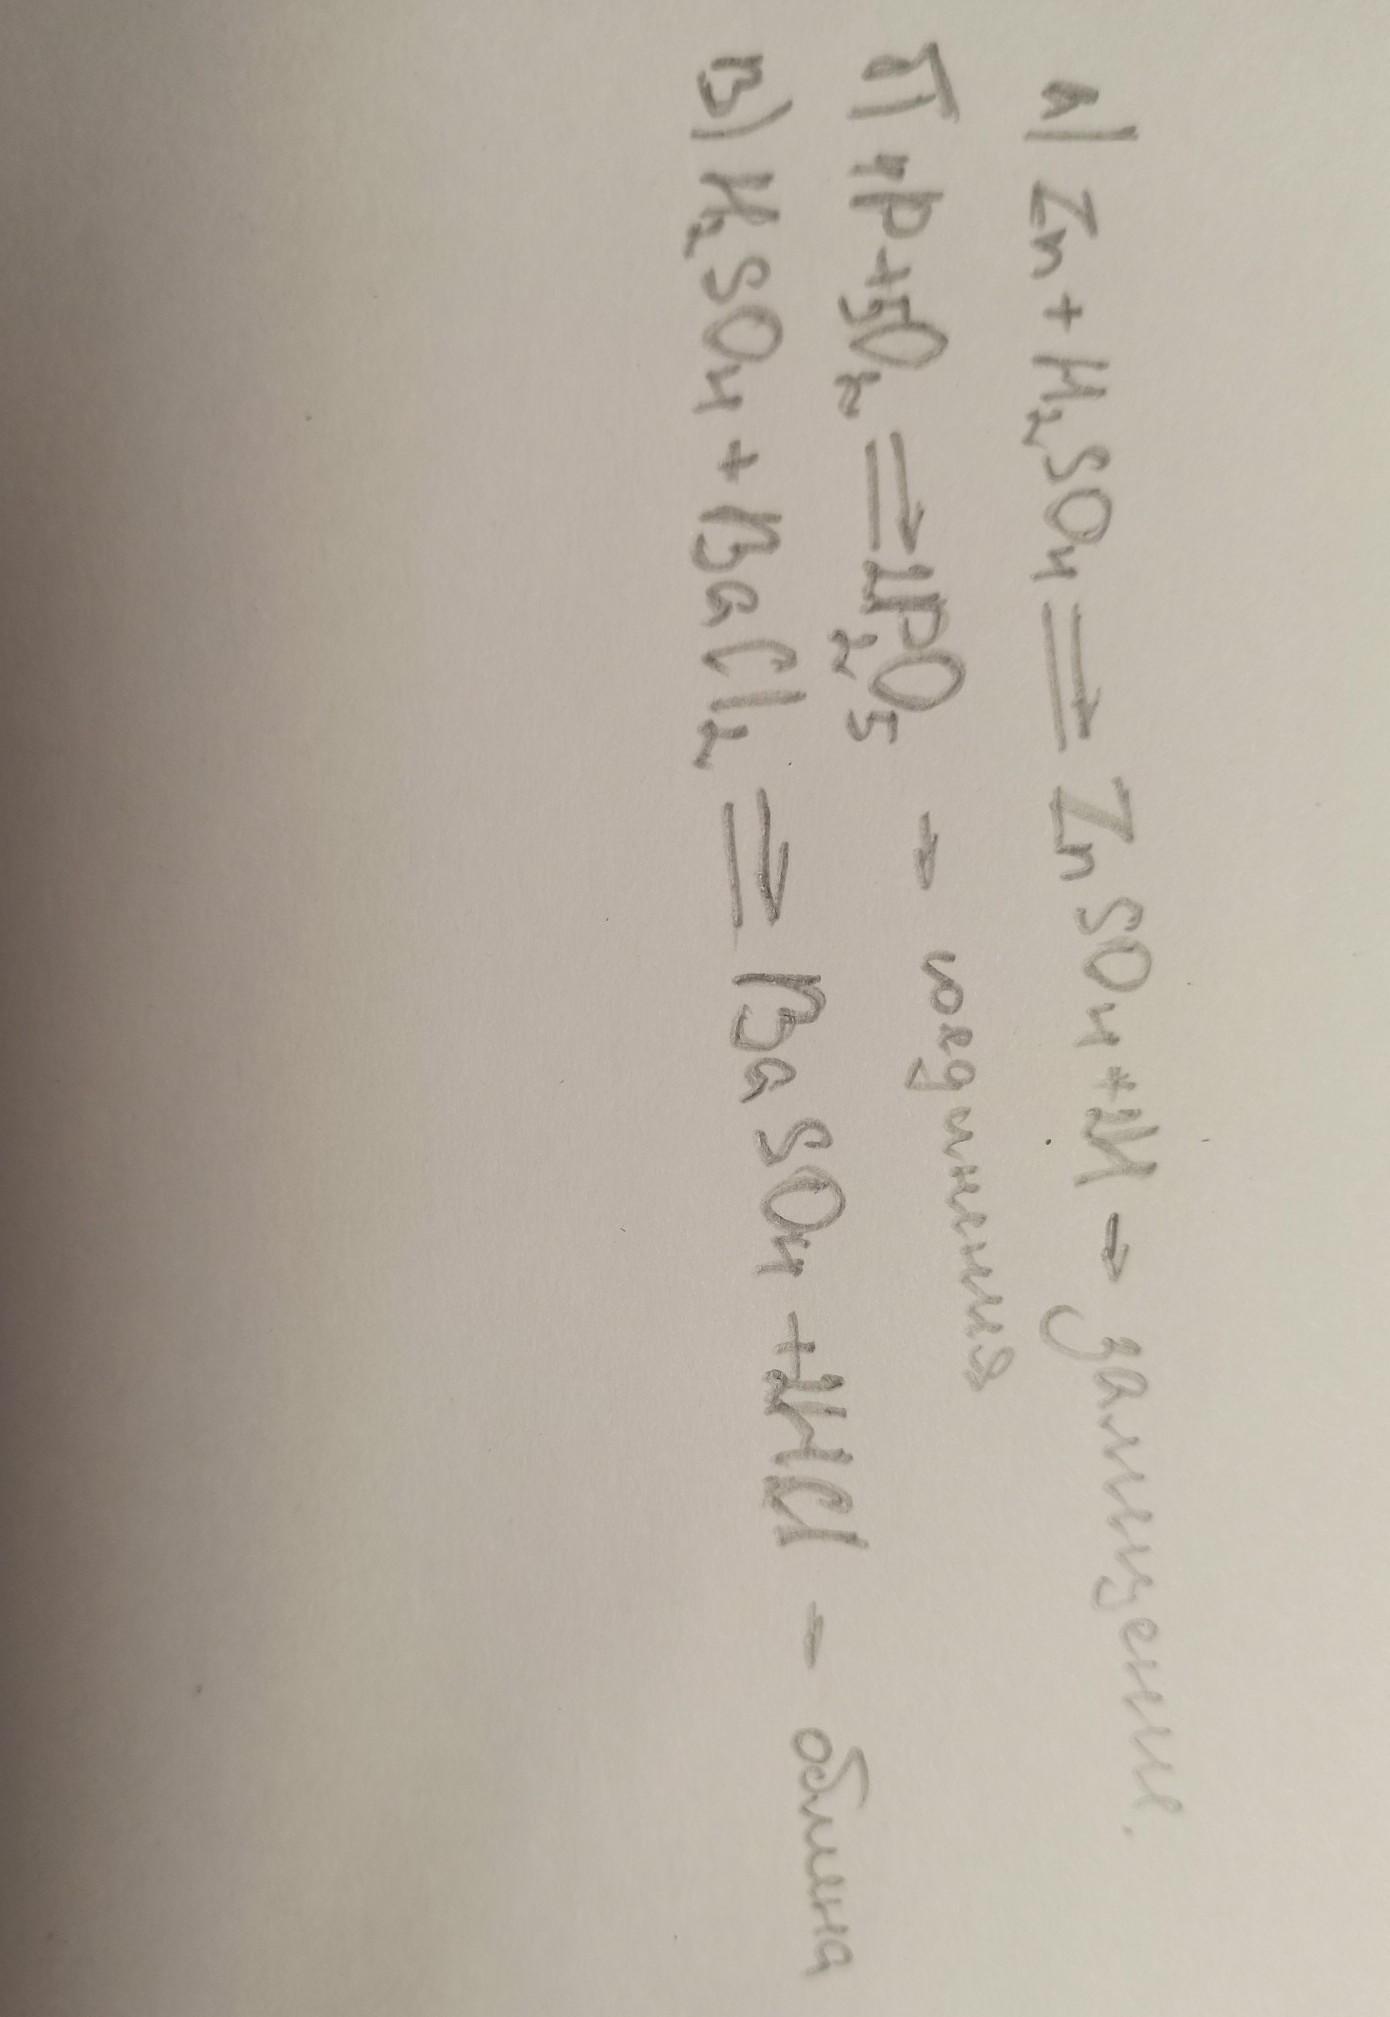 а) Zn + H₂SO₄ ⇒ ZnSO₄ + 2H - замищение.
Б) 4P + 5O₂ ⇒ 2P₂O₅ - соединения
В) H₂SO₄ + BaCl₂ ⇒ BaSO₄ + 2HCl - обмена